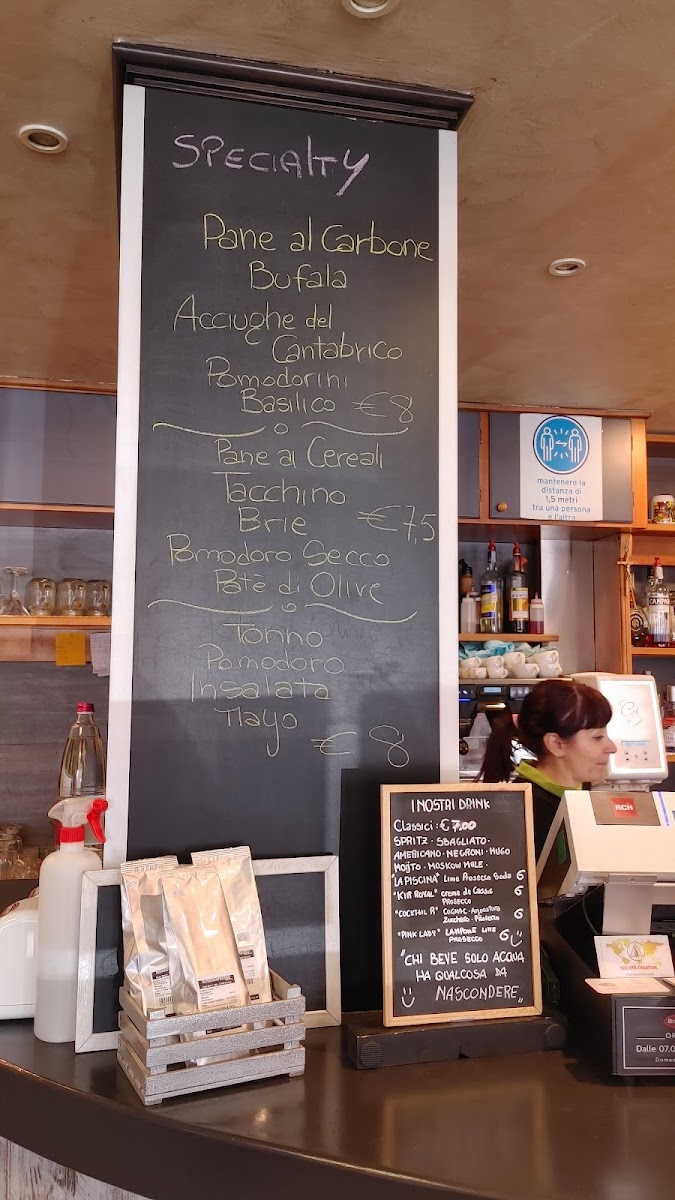 SPECIALTY
Pane al Carbone
Bufala
Acciughe del
Cantabrico
Pomodorini
Basilico €8
o
Pane ai Cereali
Tacchino
Brie €7,5
Pomodoro Secco
Patè di Olive
o
Tonno
Pomodoro
Insalata
Mayo
€8
mantenere la
distanza di
1,5 metri
tra una persona
e l'altra
CAMPARI
RCH
I NOSTRI DRINK
Classici: €7.00
SPRITZ · SBAGLIATO ·
AMERICANO · NEGRONI · HUGO
MOJITO · MOSKOW MULE ·
"LA PISCINA" Lime Prosecco Soda 6
"KIR ROYAL" creme de Cassis 6
Prosecco
"COCKTAIL R" COGNAC · Angostura 6
Zucchero · Prosecco
"PINK LADY" LAMPONE LIME 6
PROSECCO
"CHI BEVE SOLO ACQUA
HA QUALCOSA DA
NASCONDERE"
SOCIETÀ CREATIVA
Dalle 07.0